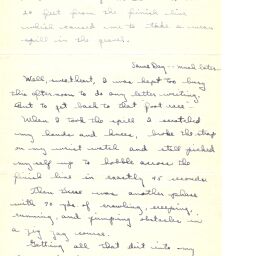 50 feet from the finish line
which caused me to take a mean
spill in the gravel.
Same Day -- much later
Well, sweetheart, I was kept too busy
this afternoon to do any letter writing.
But to get back to that foot race -
When I took the spill I scratched
my hands and knees, broke the strap
on my wrist watch and still picked
myself up to hobble across the
finish line in exactly 45 seconds.
Then there was another phase
with 70 yds. of crawling, creeping,
running, and jumping obstacles in
a zig zag course.
Getting all that dirt into my